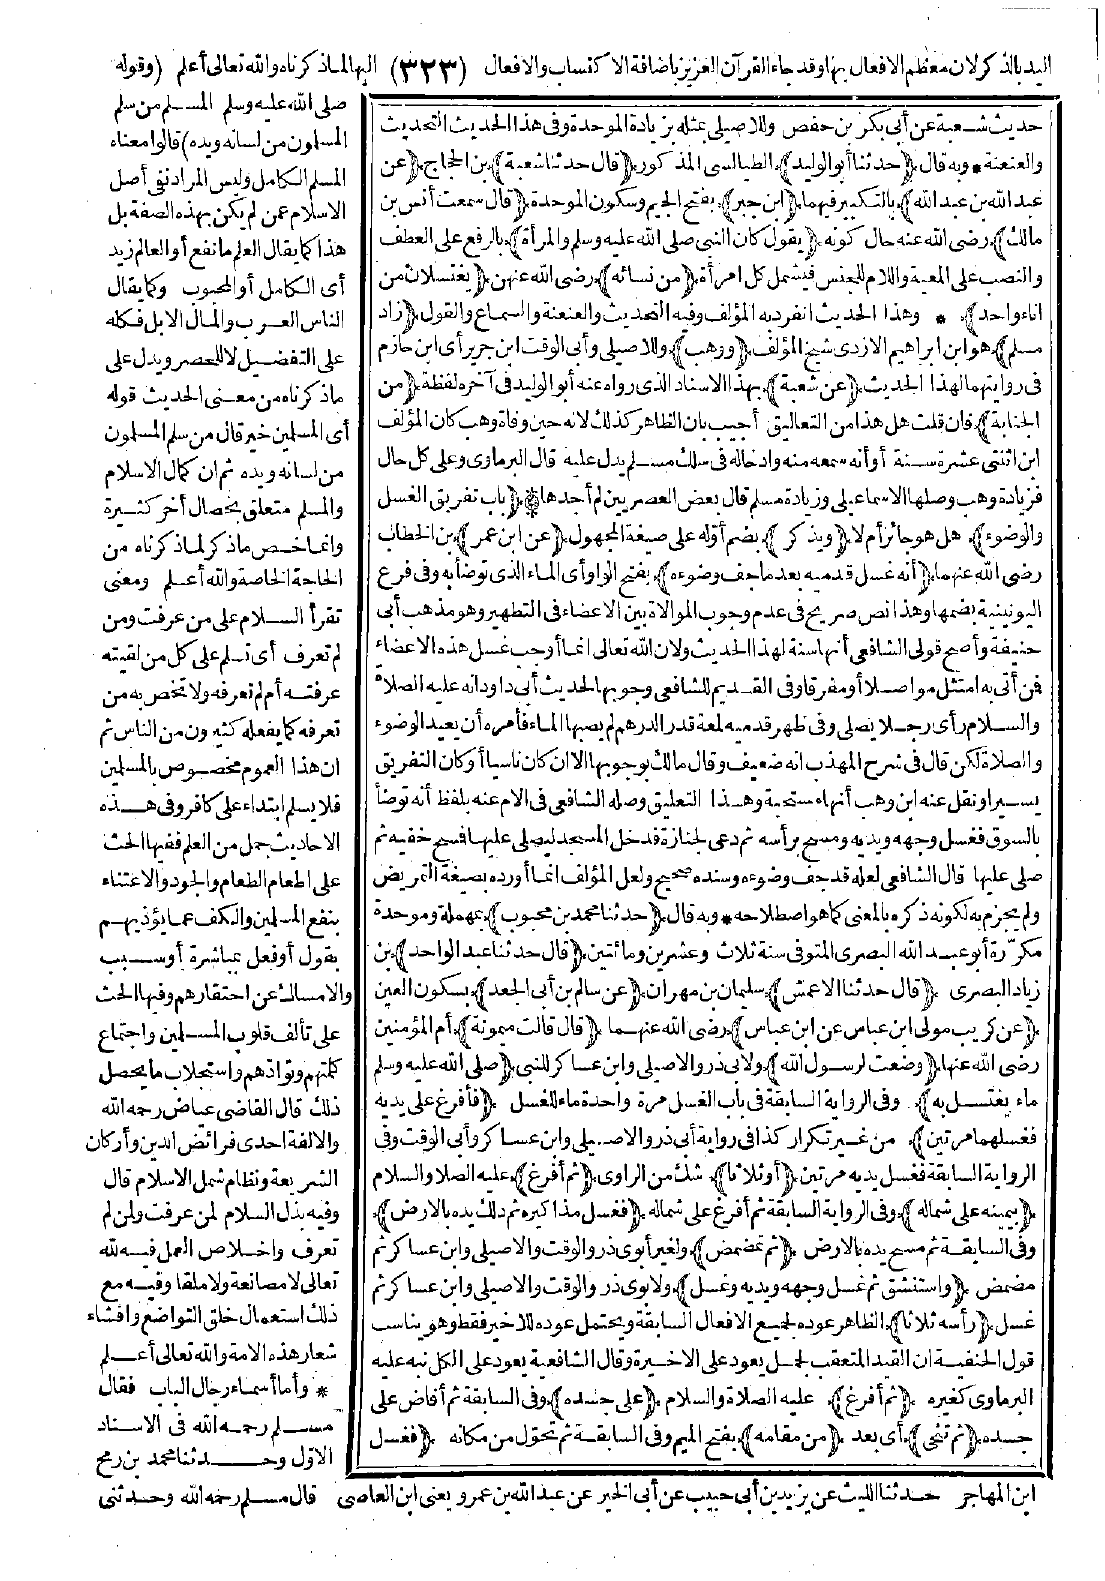 اليد بالذكر لان معظم الافعال بها وقد جاء القرآن العزيز باضافة الاكتساب والافعال (٣٢٣) اليها لماذكرناه والله تعالى أعلم (وقوله
حديث شعبة عن أبى بكر بن حفص وللاصيلى بمثله بزيادة الموحدة وفى هذا الحديث التحديث
والعنعنة * وبه قال (حدثنا أبو الوليد) الطيالسى المذكور (قال حدثنا شعبة) بن الحجاج (عن
عبد الله بن عبد الله) بالتكبير فيهما (ابن جبر) بفتح الجيم وسكون الموحدة (قال سمعت أنس بن
مالك) رضى الله عنه حال كونه (يقول كان النبى صلى الله عليه وسلم والمرأة) بالرفع على العطف
والنصب على المعية واللام للجنس فيشمل كل امرأة (من نسائه) رضى الله عنهن (يغتسلان من
اناء واحد) * وهذا الحديث انفرد به المؤلف وفيه التحديث والعنعنة والسماع والقول (زاد
مسلم) هو ابن ابراهيم الازدى شيخ المؤلف (ووهب) وللاصيلى وأبى الوقت ابن جرير أى ابن حازم
فى روايتهما لهذا الحديث (عن شعبة) بهذا الاسناد الذى رواه عنه أبو الوليد فى آخره لفظة (من
الجنابة) فان قلت هل هذا من التعاليق أجيب بان الظاهر كذلك لانه حين وفاة وهب كان المؤلف
ابن اثنتى عشرة سنة أو أنه سمعه منه وادخاله فى سلك مسلم يدل عليه قال البرماوى وعلى كل حال
فزيادة وهب وصلها الاسماعيلى وزيادة مسلم قال بعض العصريين لم أجدها (باب تفريق الغسل
والوضوء) هل هو جائز أم لا (ويذكر) بضم أوله على صيغة المجهول (عن ابن عمر) بن الخطاب
رضى الله عنهما (أنه غسل قدميه بعد ما جف وضوءه) بفتح الواو أى الماء الذى توضأ به وفى فرع
اليونينية بضمها وهذا نص صريح فى عدم وجوب الموالاة بين الاعضاء فى التطهير وهو مذهب أبى
حنيفة وأصح قولى الشافعى أنها سنة لهذا الحديث ولان الله تعالى انما أوجب غسل هذه الاعضاء
فن أتى به امتثل مواصلا أو مفرقا وفى القديم للشافعى وجوبها لحديث أبى داود انه عليه الصلاة
والسلام رأى رجلا يصلى وفى ظهر قدميه لمعة قدر الدرهم لم يصبها الماء فأمره أن يعيد الوضوء
والصلاة لكن قال فى شرح المهذب انه ضعيف وقال مالك بوجوبها الا ان كان ناسيا أو كان التفريق
يسيرا ونقل عنه ابن وهب أنها مستحبة وهذا التعليق وصله الشافعى فى الام عنه بلفظ أنه توضأ
بالسوق فغسل وجهه ويديه ومسح برأسه ثم دعى لجنازة فدخل المسجد ليصلى عليها فمسح خفيه ثم
صلى عليها قال الشافعى لعله قد جف وضوءه وسنده صحيح ولعل المؤلف انما أورده بصيغة التمريض
ولم يجزم به لكونه ذكره بالمعنى كما هو اصطلاحه * وبه قال (حدثنا محمد بن محبوب) بمهملة وموحدة
مكررة أبو عبد الله البصرى المتوفى سنة ثلاث وعشرين ومائتين (قال حدثنا عبد الواحد) بن
زياد البصرى (قال حدثنا الاعمش) سليمان بن مهران (عن سالم بن أبى الجعد) بسكون العين
(عن كريب مولى ابن عباس عن ابن عباس) رضى الله عنهما (قال قالت ميمونة) أم المؤمنين
رضى الله عنها (وضعت لرسول الله) ولابى ذر والاصيلى وابن عساكر للنبى (صلى الله عليه وسلم
ماء يغتسل به) وفى الرواية السابقة فى باب الغسل مرة واحدة ماء للغسل (فأفرغ على يديه
فغسلهما مرتين) من غير تكرار كذا فى رواية أبى ذر والاصيلى وابن عساكر وأبى الوقت وفى
الرواية السابقة فغسل يديه مرتين (أو ثلاثا) شك من الراوى (ثم أفرغ) عليه الصلا والسلام
(بيمينه على شماله) وفى الرواية السابقة ثم أفرغ على شماله (فغسل مذاكيره ثم دلك يده بالارض)
وفى السابقة ثم مسح يده بالارض (ثم تمضمض) ولغير أبوى ذر والوقت والاصيلى وابن عساكر ثم
مضمض (واستنشق ثم غسل وجهه ويديه وغسل) ولابوى ذر والوقت والاصيلى وابن عساكر ثم
غسل (رأسه ثلاثا) الظاهر عوده لجميع الافعال السابقة ويحتمل عوده للاخير فقط وهو يناسب
قول الحنفية ان القيد المتعقب لجمل يعود على الاخيرة وقال الشافعية يعود على الكل نبه عليه
البرماوى كغيره (ثم أفرغ) عليه الصلاة والسلام (على جسده) وفى السابقة ثم أفاض على
جسده (ثم تنحى) أى بعد (من مقامه) بفتح الميم وفى السابقة ثم تحول من مكانه (فغسل
صلى الله عليه وسلم المسلم من سلم
المسلمون من لسانه ويده) قالوا معناه
المسلم الكامل وليس المراد نفى أصل
الاسلام عمن لم يكن بهذه الصفة بل
هذا كما يقال العلم ما نفع أو العالم زيد
أى الكامل أو المحبوب وكما يقال
الناس العرب والمال الابل فكله
على التفضيل لا للحصر ويدل على
ماذكرناه من معنى الحديث قوله
أى المسلمين خير قال من سلم المسلمون
من لسانه ويده ثم ان كمال الاسلام
والمسلم متعلق بخصال أخر كثيرة
وانما خص ماذكر لماذكرناه من
الحاجة الخاصة والله أعلم ومعنى
تقرأ السلام على من عرفت ومن
لم تعرف أى تسلم على كل من لقيته
عرفته أم لم تعرفه ولا تخص به من
تعرفه كما يفعله كثيرون من الناس ثم
ان هذا العموم مخصوص بالمسلمين
فلا يسلم ابتداء على كافر وفى هذه
الاحاديث جمل من العلم ففيها الحث
على اطعام الطعام والجود والاعتناء
بنفع المسلمين والكف عما يؤذيهم
بقول أو فعل بمباشرة أو سبب
والامساك عن احتقارهم وفيها الحث
على تألف قلوب المسلمين واجتماع
كلمتهم وتوادهم واستجلاب ما يحصل
ذلك قال القاضى عياض رحمه الله
والالفة احدى فرائض الدين وأركان
الشريعة ونظام شمل الاسلام قال
وفيه بذل السلام لمن عرفت ولمن لم
تعرف واخلاص العمل فيه لله
تعالى لا مصانعة ولا ملقا وفيه مع
ذلك استعمال خلق التواضع وافشاء
شعار هذه الامة والله تعالى أعلم
* وأما أسماء رجال الباب فقال
مسلم رحمه الله فى الاسناد
الاول وحدثنا محمد بن رمح
ابن المهاجر حدثنا الليث عن يزيد بن أبى حبيب عن أبى الخير عن عبد الله بن عمرو يعنى ابن العاصى قال مسلم رحمه الله وحدثنى